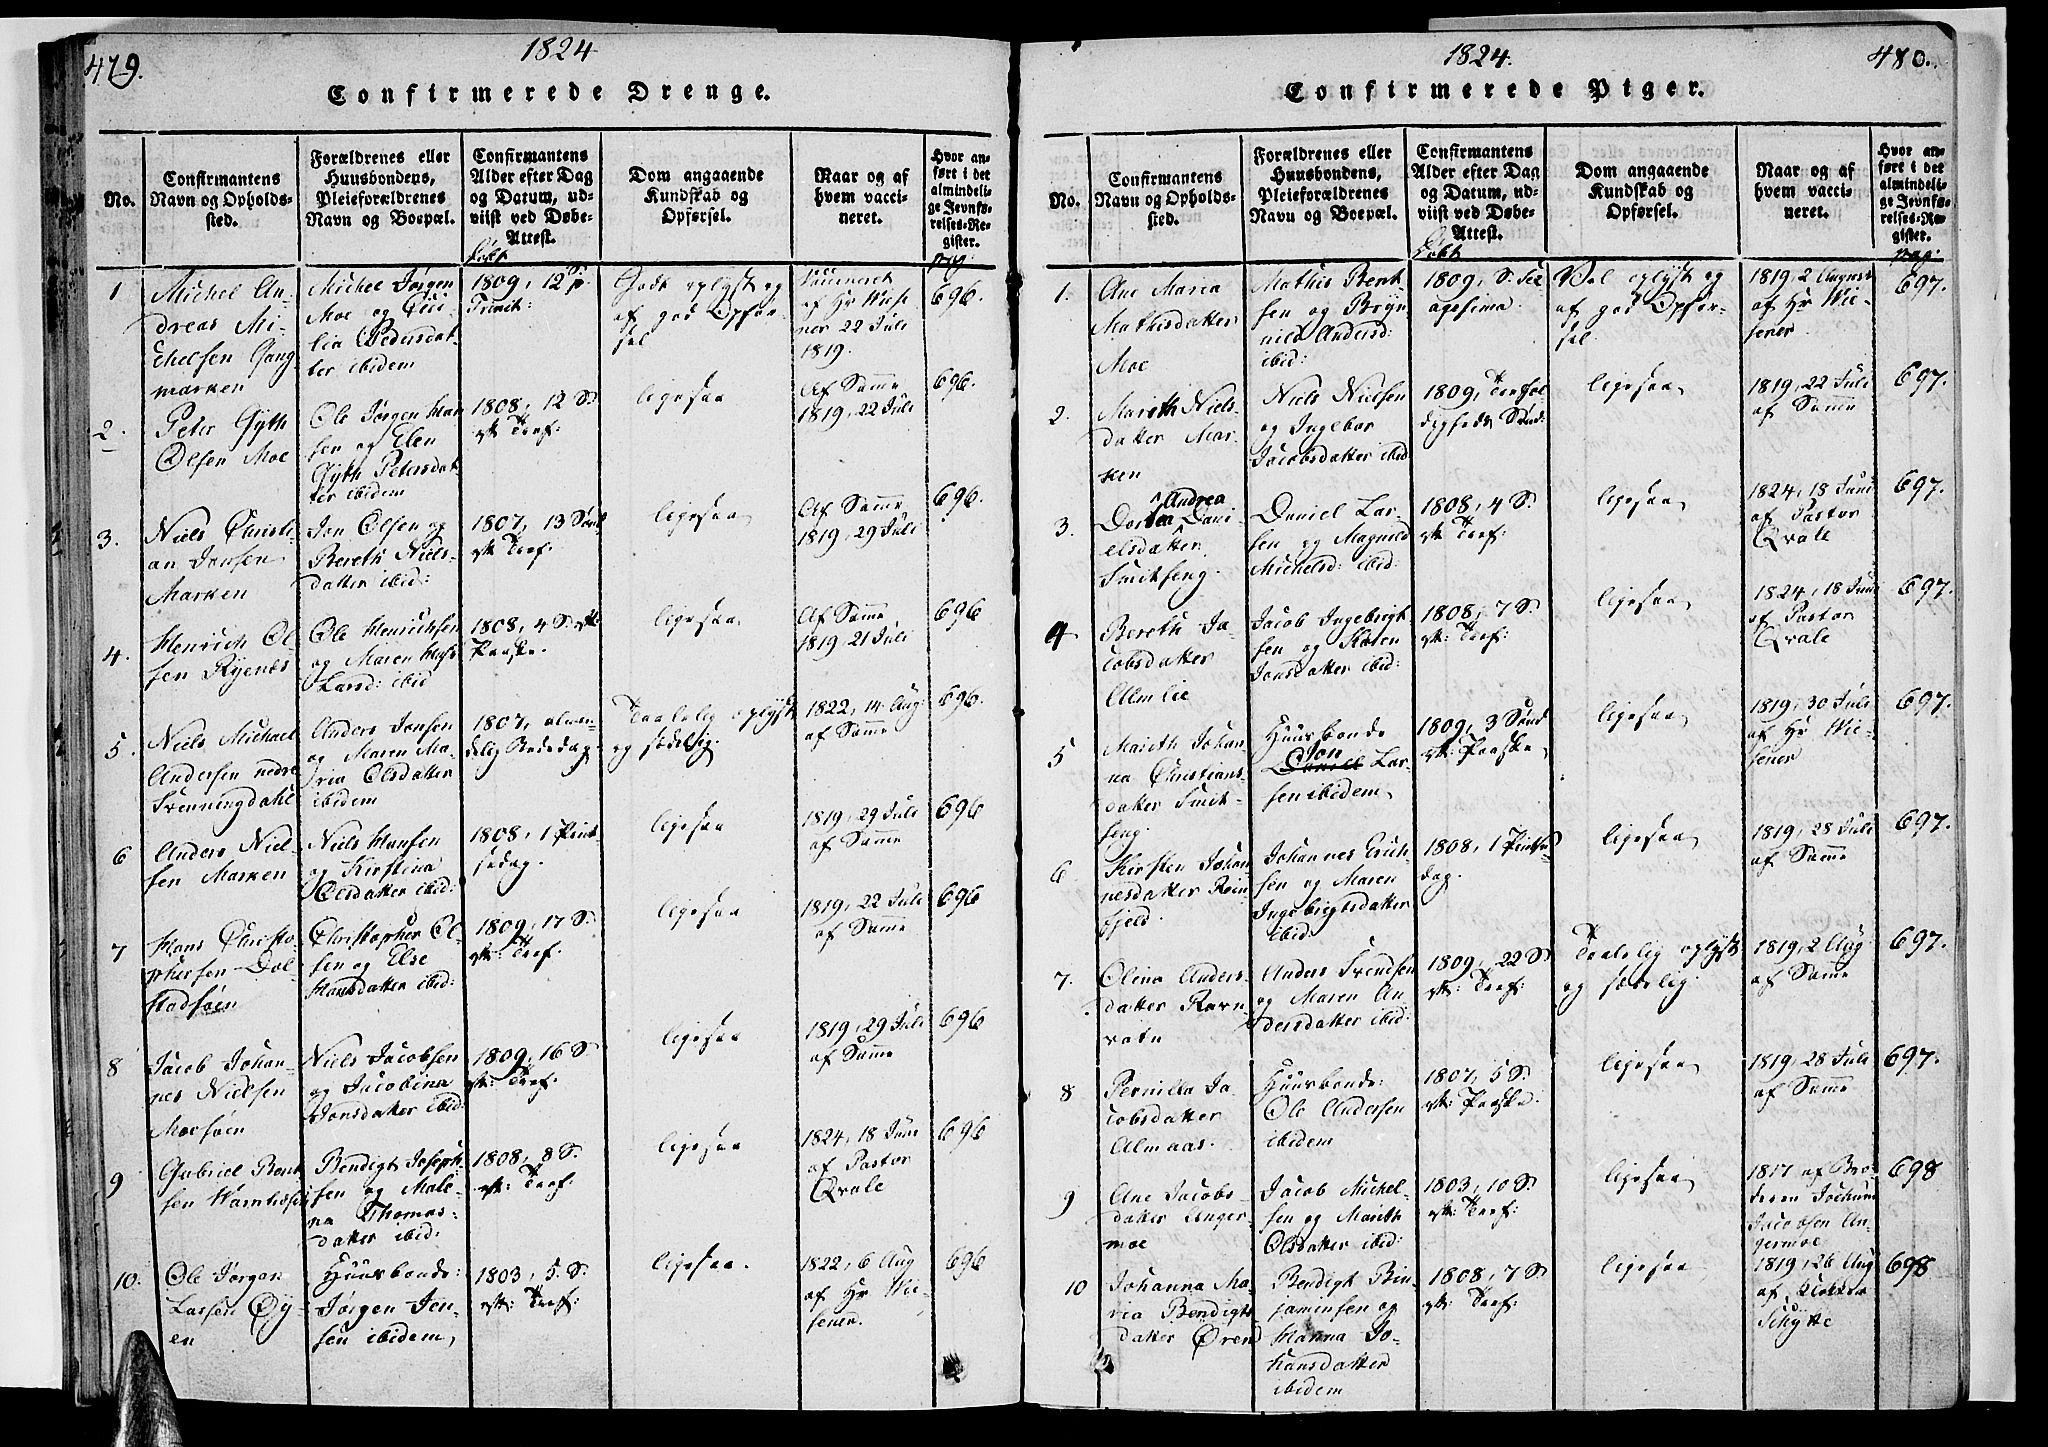 479.
1824
Confirmerede Drenge.
No.
Confirmantens
Navn og Opholds-
sted.
Forældrenes eller
Huusbondens,
Pleieforældrenes
Navn og Boepæl.
Confirmantens
Alder efter Dag
og Datum, ud-
viist ved Døbe-
Attest.
Døbt
Dom angaaende
Kundskab og
Opførsel.
Naar og af
hvem vacci-
neret.
Hvor an-
ført i det
almindeli-
ge Jevnfø-
relses-Re-
gister.
pag:
1
Michel An-
dreas Mi-
chelsen Gang
marken
Michel Jørgen
Moe og
lia Pedersdat-
ter ibidem
1809, 12 S. p.
Trinit:
Godt oplyst og
af god Opfør-
sel
af Hr Wise
ner 22 Juli
1819.
696.
2.
Peter Gyth
Olsen Moe
Ole Jørgen Han
sen og Elen
Gyth Petersdat-
ter ibidem
1808, 12 S.
eft: Tref:
ligesaa
Af Samme
1819, 22 Juli
696.
3.
Niels Christi-
an Jonsen
Marken
Jon Olsen og
Bereth Niels-
datter ibid:
1807, 13 Sønd
eft: Tref:
ligesaa
Af Samme
1819, 29 Juli
696.
4.
Henrich Ol-
sen Ryenes
Ole Henrichsen
og Maren
Larsd: ibid
1808, 4 S. eft:
Paaske.
ligesaa
Af Samme
1819 21 Juli
696
5.
Niels Michael
Andersen nedre
Svenningdahl
Anders Jonsen
og Maren Ma-
ria Olsdatter
ibidem
1807, almin-
delig Bededag.
Taalelig oplyst
og sædelig.
1822, 14 Aug:
af Samme
696.
6
Anders Niel-
sen Marken
Niels Hansen
og Kirstina
Olsdatter ibid:
1808, 1 Pint
sedag.
ligesaa
1819, 29 Juli
af Samme
696
7
Hans Christo-
phersen Dol-
stadsøen
Christopher Ol-
sen og Else
Hansdatter ibid:
1809, 17 S.
eft: Tref:
ligesaa
1819, 22 Juli
af Samme
696
8
Jacob Johan-
nes Nielsen
Moesøen
Niels Jacobsen
og Jacobina
Jonsdatter ibid:
1809, 16 S.
eft: Tref:
ligesaa
1819, 29 Juli
af Samme
696
9
Gabriel Bent
sen
Bendigt Joseph-
sen og Male-
na Thomas-
datter ibid:
1808, 8 S.
eft: Tref:
ligesaa
1824, 18 Juni
af Pastor
Qvale
696
10.
Ole Jørgen
Larsen Øy-
en
Huusbonde:
Jørgen Jen-
sen ibidem,
1803, 5 S.
eft: Tref:
ligesaa.
1822, 6 Aug
af Hr Wi-
sener.
696
1824.
480.
Confirmerede Piger.
No.
Confirmantens
Navn og Opholds-
sted.
Forældrenes eller
Huusbondens,
Pleieforældrenes
Navn og Boepæl.
Confirmantens
Alder efter Dag
og Datum, ud-
viist ved Døbe-
Attest.
Døbt
Dom angaaende
Kundskab og
Opførsel.
Naar og af
hvem vacci-
neret.
Hvor an-
ført i det
almindeli-
ge Jevnfø-
relses-Re-
gister.
pag:
1.
Ane Maria
Mathisdatter
Moe
Mathis Bent-
sen og Bryn
nild Andersd:
ibid:
1809, S. Sex
agesima.
Vel oplyst og
af god Opfør-
sel.
1819, 2 August
af Hr Wi-
sener.
697.
2.
Mareth Niels-
datter Mar-
ken
Niels Nielsen
og Ingebor
Jacobsdatter ibid
1809, Trefol
digheds Sønd:
ligesaa
1819, 22 Juli
af Samme
697.
3.
Andrea
Dorthea Dani-
elsdatter
Smitseng.
Daniel Lar-
sen og Magnild
Michelsd: ibid:
1808, 4 S.
eft: Tref:
ligesaa
1824, 18 Juni
af Pastor
Qvale
697.
4
Bereth Ja-
cobsdatter
Almlie
Jacob Ingebrigt
sen og Karen
Jonsdatter ibid:
1808, 7 S.
eft: Tref:
ligesaa
1824, 18 Juni
af Pastor
Qvale
697.
5
Mareth Johan-
na Christians-
datter Smit-
seng.
Huusbonde
Jon
Lar-
sen ibidem,
1809, 3 Sønd
eft: Paaske,
ligesaa
1819, 30 Juli
af Hr Wi-
sener
697.
6
Kirsten Johan-
nesdatter Rein
fjeld.
Johannes Erich-
sen og Maren
Ingebrigtsdatter
ibid:
1808, 1 Pintse
dag.
ligesaa
1819, 28 Juli
af Samme
697.
7.
Olina Anders
datter Ravn
vatn
Anders Svendsen
og Maren An
dersdatter ibid:
1809, 22 S.
eft: Tref:
Taalelig oplyst
og sædelig.
1819, 2 Aug
af Samme
697.
8
Pernilla Ja
cobsdatter
Almaas.
Huusbonde:
Ole Andersen
ibidem
1807, 5 S.
eft: Paaske.
ligesaa
1819, 28 Juli
af Samme
697.
9
Ane Jacobs-
datter Anger-
moe
Jacob Michel-
sen og Mareth
Olsdatter ibid:
1803, 10 S.
eft: Tref:
ligesaa
1817 af Bro
deren Jochum
Jacobsen An-
germoe
698
10
Johanna Ma-
ria Bendigts
datter Ørend
Bendigt Bin-
jaminsen og
Hanna Jo-
hansdatter
ibidem
1808, 7 S.
eft: Tref:
ligesaa
1819, 26 Aug
af Klokker
Schytte
698